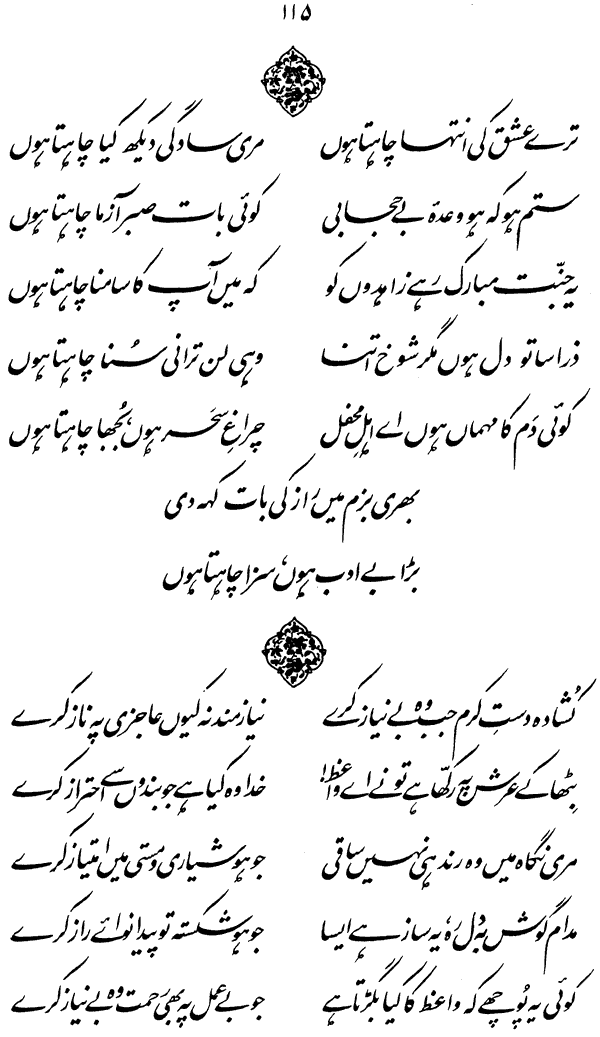 ۱۱۵
ترے عشق کی انتہا چاہتا ہوں مری سادگی دیکھ کیا چاہتا ہوں
ستم ہو کہ ہو وعدۂ بے حجابی کوئی بات صبر آزما چاہتا ہوں
یہ جنّت مبارک رہے زاہدوں کو کہ میں آپ کا سامنا چاہتا ہوں
ذرا سا تو دل ہوں مگر شوخ اتنا وہی لن ترانی سُنا چاہتا ہوں
کوئی دَم کا مہماں ہوں اے اہلِ محفل چراغِ سَحَر ہوں، بُجھا چاہتا ہوں
بھری بزم میں راز کی بات کہہ دی
بڑا بے ادب ہوں، سزا چاہتا ہوں
کُشادہ دستِ کرم جب وہ بے نیاز کرے نیاز مند نہ کیوں عاجزی پہ ناز کرے
بِٹھا کے عرش پہ رکھّا ہے تو نے اے واعظ! خدا وہ کیا ہے جو بندوں سے احتراز کرے
مری نگاہ میں وہ رند ہی نہیں ساقی جو ہوشیاری و مستی میں امتیاز کرے
مدام گوش بہ دل رہ، یہ ساز ہے ایسا جو ہو شکستہ تو پیدا نوائے راز کرے
کوئی یہ پُوچھے کہ واعظ کا کیا بگڑتا ہے جو بے عمل پہ بھی رحمت وہ بے نیاز کرے